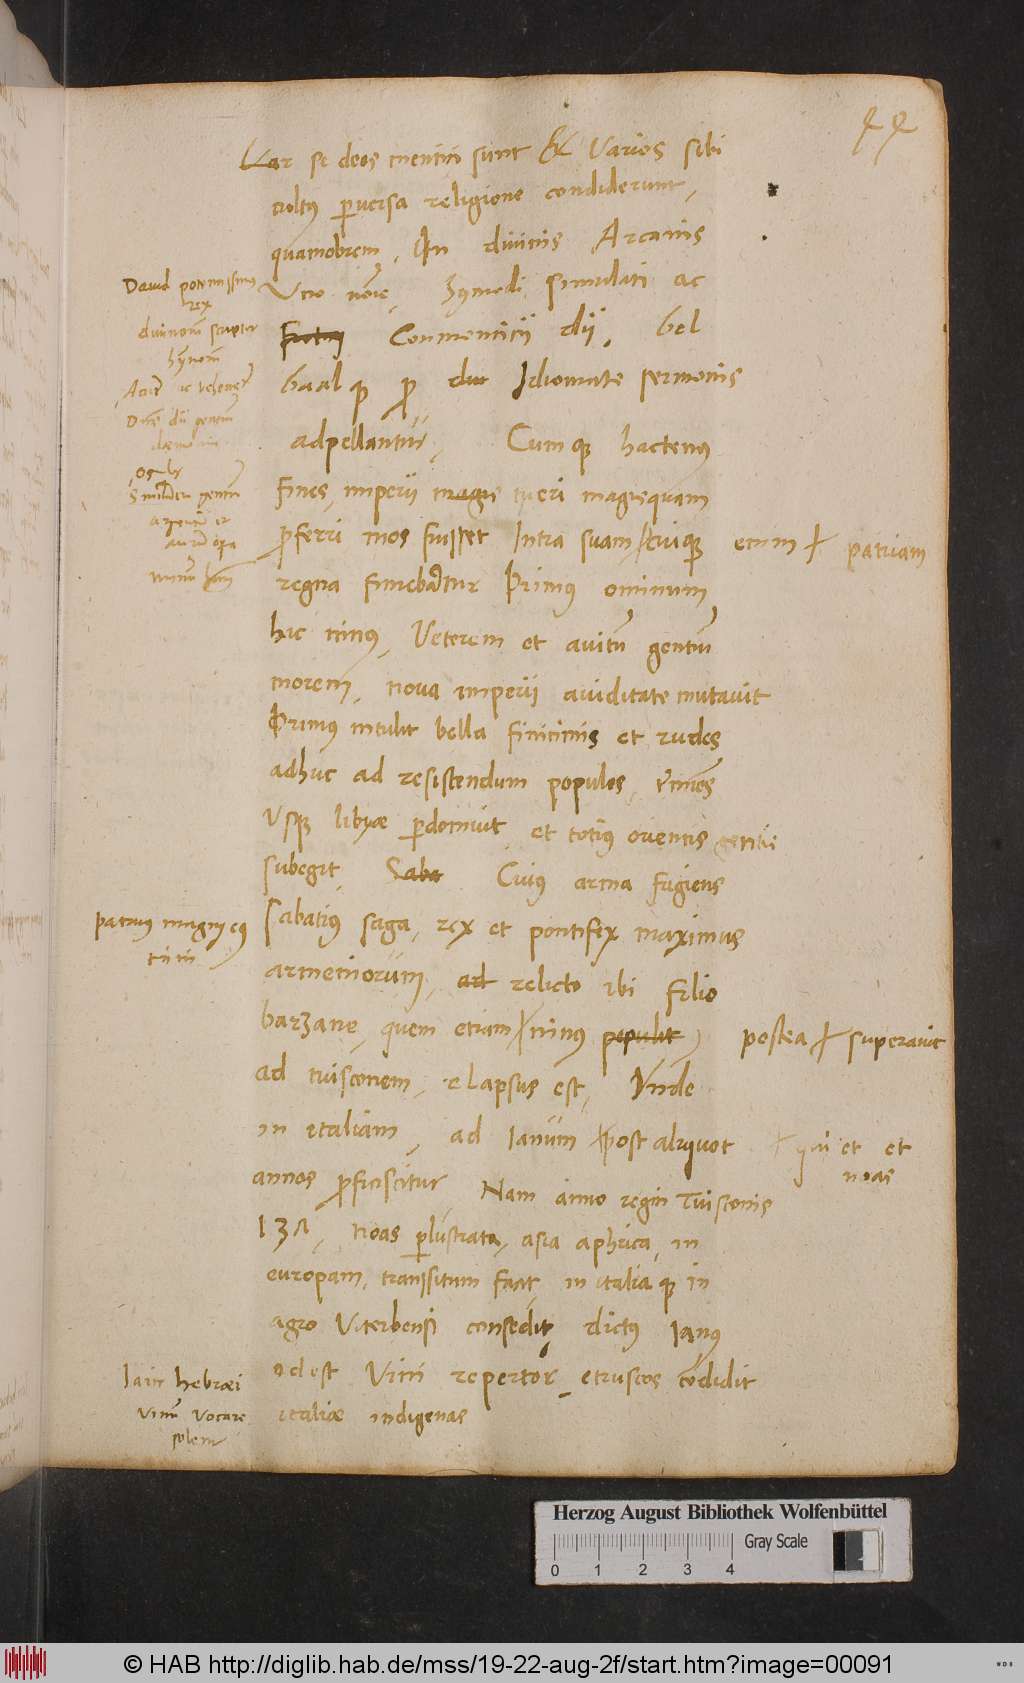 44
Lar se deos mentiti sunt & Varios sibi
noltꝰ ꝑversa religione condiderunt,
quamobrem, In divinis Arcanis
Vno nōīe, Zymodi simulati ac
Commenticij dij, bel
baal qꝫ ꝓ Idiomate sermonis
adpellantur, Cum qꝫ hactenus
fines imperii magis tueri magisquam
ꝓferri mos fuisset Intra suam cuiqꝫ enim patriam
regna finiebātur Primꝰ ominum
hic ninꝰ, Veterem et avitū gentiū
morem, nova imperii aviditate mutavit
Primꝰ intulit bella finitimis et rudes
adhuc ad resistendum populos,
Vsqꝫ libyæ ꝑdomuit, et totiꝰ orientis gentis
subegit, Saba Cuiꝰ arma fugiens
Sabatiꝰ saga, rex et pontifex maximus
armeniorum, ad relicto ibi filio
barzane, quem etiam ninꝰ populit postea superavit
ad tuisconem, elapsus est, Vnde
in italiam, ad Ianum post aliquot qui et et
noas
annos ꝓficiscitur, Nam anno regni Tuisconis
noas ꝑlustrata, asia aphrica, in
europam, transsitum facit, in italia qꝫ in
agro Viterbensi consedit, dictꝰ Ianꝰ
idest Vini repertor, etruscos cōdidit
italiæ indigenas
David potentissimꝰ
rex
divinorū scriptor
hymnorū
Omēs dii gentiū
dæmonia
Simulacra gentiū
argentū et
aurū opa
manuū hoīm
patruus magni eꝰ
Iain hebræi
Vinū Vocare
solent
Herzog August Bibliothek Wolfenbüttel
Gray Scale
0 1 2 3 4
© HAB http://diglib.hab.de/mss/19-22-aug-2f/start.htm?image=00091